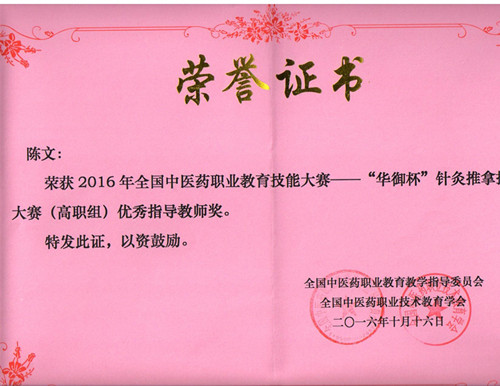 荣誉证书
陈文：
荣获2016年全国中医药职业教育技能大赛——“华御杯”针灸推拿
大赛（高职组）优秀指导教师奖。
特发此证，以资鼓励。
全国中医药职业教育教学指导委员会
全国中医药职业技术教育学会
二〇一六年十月十六日